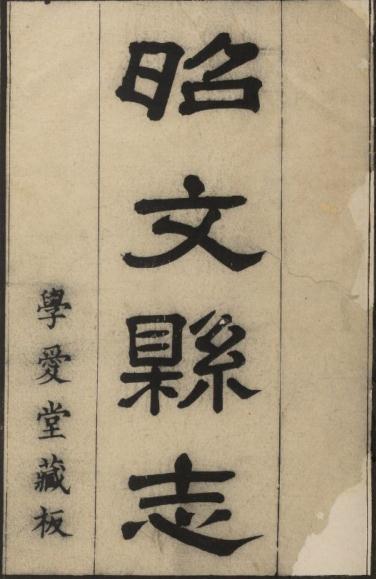 昭文縣志
學愛堂藏板